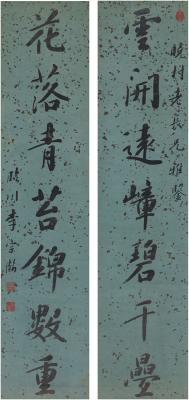 雲開遠嶂碧千疊
晚村老長兄雅鑒
花落青苔錦數重
臨川李宗瀚